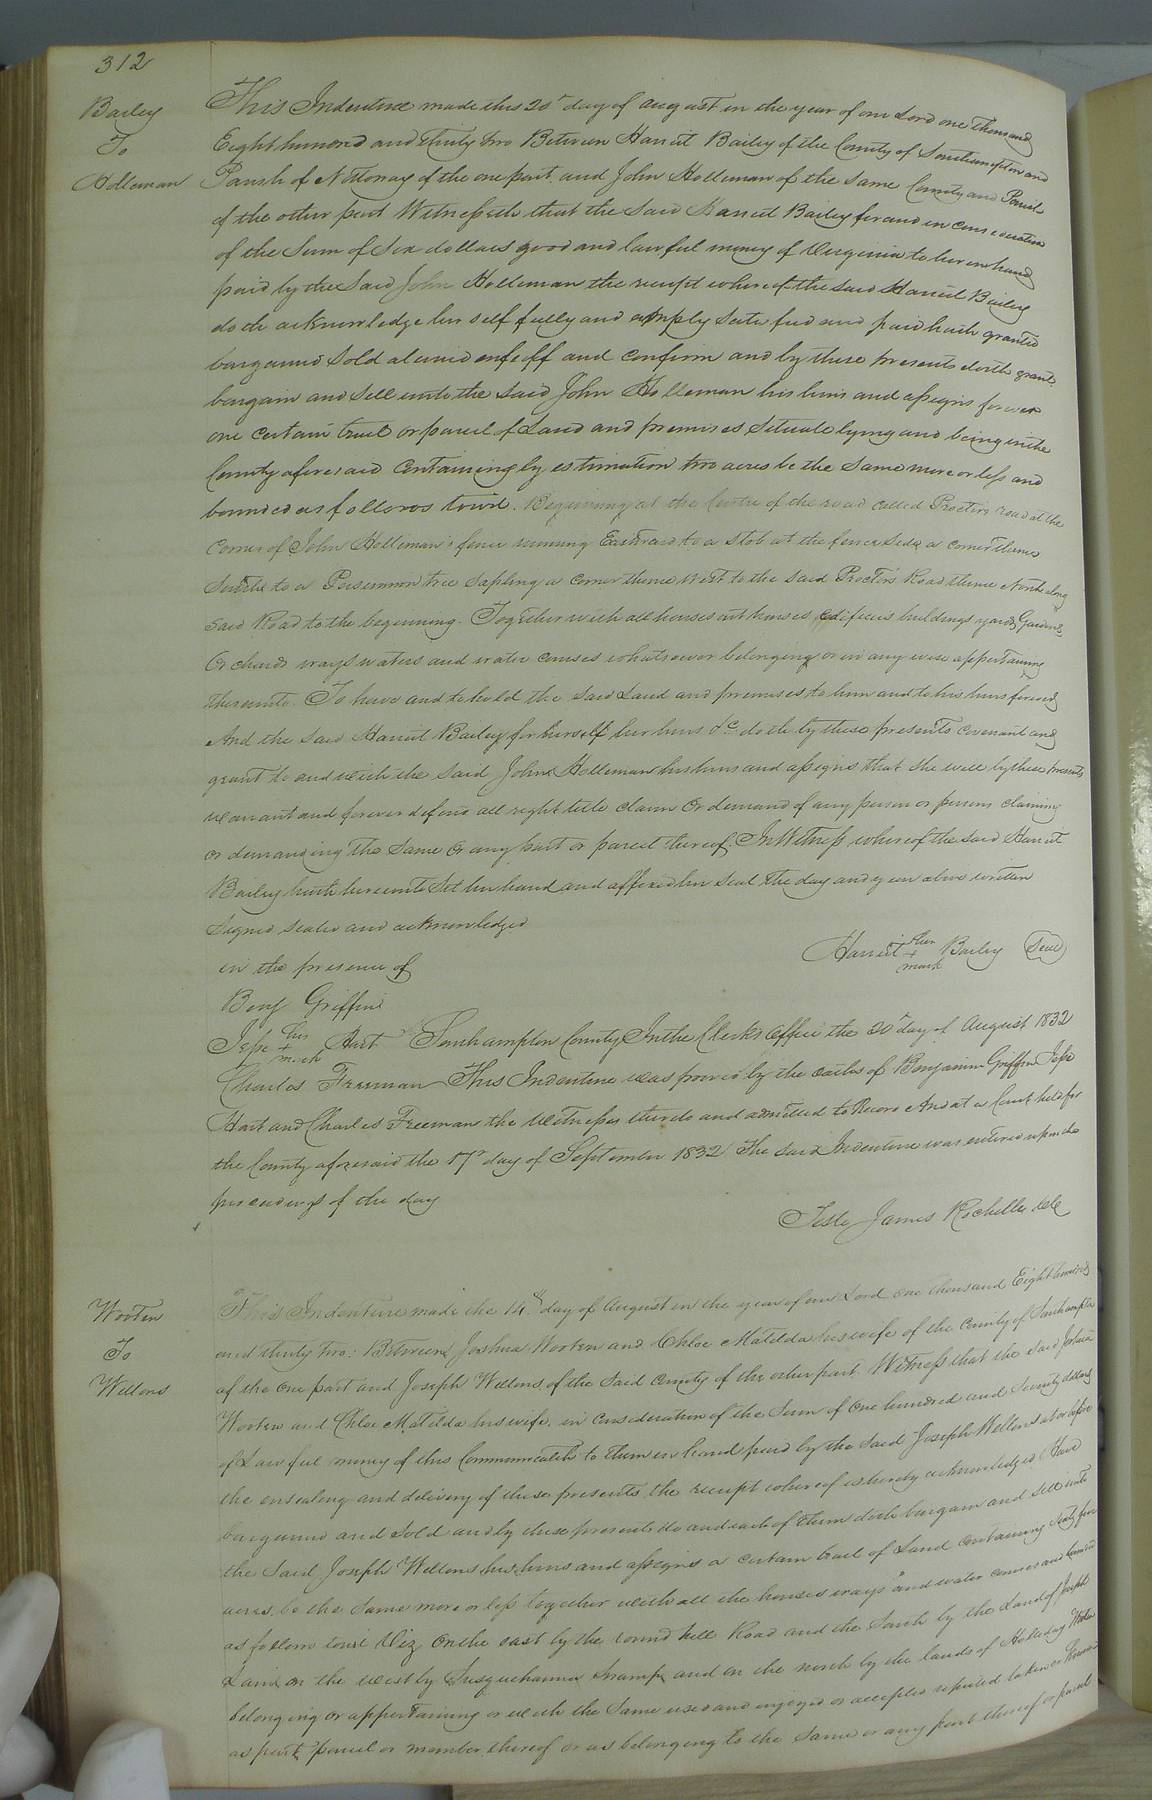 312
Bailey
To
Holleman
This Indenture made this 20th day of August in the year of our Lord one Thousand
Eight hunored and thirty two Between Harriet Bailey of the County of Southampton and
Parish of Nottoway of the one part and John Holleman of the same County and Parish
of the other part Witnesseth that the said Harriet Bailey for and in consideration
of the Sum of Six dollars good and lawful money of Virginia to her in hand
paid by the Said John Holleman the receipt whereof the said Harriet Bailey
doth acknowledge her self fully and amply satisfied and paid hath granted
bargained Sold aliened enfeoff and confirm and by these presents doth grant
bargain and sell unto the said John Holleman his heirs and assigns forever
one certain tract or parcel of Land and premises Situate lying and being in the
County aforesaid Containing by estimation two acres be the Same more or less and
bounded as follows towit. Beginning at the Centre of the road called Proctors road at the
Corner of John Holleman's fence running Eastward to a Stob at the fence Side a corner thence
South to a Persimmon tree Sapling a corner thence West to the said Proctors Road thence North along
Said Road to the beginning. Together with all houses out houses edifices buildings yards Gardens
Orchards ways waters and water courses whatsoever belonging or in any wise appertaining
thereunto. To have and to hold the said Land and premises to him and to his heirs forever
And the said Harriet Bailey for herself her heirs &c doth by these presents Covenant and
grant to and with the said John Holleman his heirs and assigns that she will by these presents
warrant and forever defend all right title claim Or demand of any person or persons claiming
or demanding the Same Or any part or parcel thereof. In Witness whereof the said Harriet
Bailey hath hereunto Set her hand and affixed her Seal the day and year above written
Signed Sealed and acknowledged
in the presence of
Harriet her + mark Bailey Seal
Benj Griffin
Jesse his + mark Hart
Southampton County In the Clerks Office the 20th day of August 1832
Charles Freeman
This Indenture was proved by the oaths of Benjamin Griffin Jesse
Hart and Charles Freeman the Witnesses thereto and admitted to Record And at a Court held for
the County aforesaid the 17th day of September 1832 The said Indenture was entered upon the
proceedings of the day
Teste James Rochelle
Wooten
To
Wellons
This Indenture made the 14th day of August in the year of our Lord one thousand Eight hundred
and thirty two: Between Joshua Wooten and Chloe Matilda his wife of the County of Southampton
of the one part and Joseph Wellons of the said County of the other part. Witness that the said Joshua
Wooten and Chloe Matilda his wife, in Consideration of the Sum of One hundred and Seventy dollars
of Lawful money of this Commonwealth to them in hand paid by the Said Joseph Wellons at or before
the ensealing and delivery of these presents the receipt whereof is hereby acknowledged Have
bargained and Sold and by these presents do and each of them doth bargain and Sell unto
the Said Joseph Wellons his heirs and assigns a certain tract of Land containing Sixty
acres, be the Same more or less together with all the houses ways and water courses and bounded
as follows towit Viz On the east by the round hill Road and the South by the Land of Joseph
on the west by Susquehanna Swamp, and on the north by the lands of Holladay
belonging or appertaining or with the Same used and enjoyed or accepted reputed taken or known
as part parcel or member thereof or as belonging to the Same or any part thereof or parcel